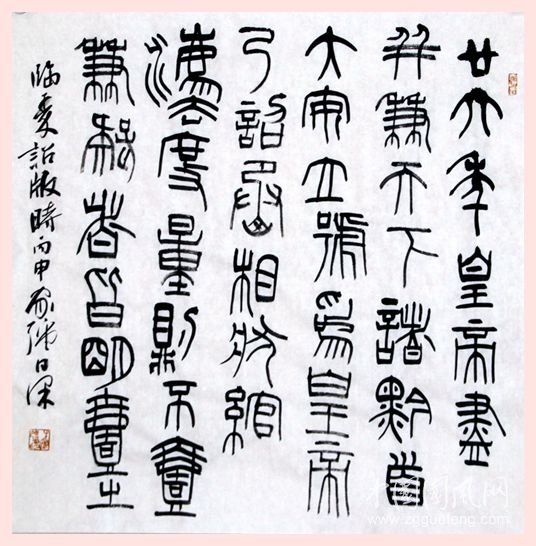 廿六年皇帝盡
并兼天下諸黔首
大安立號為皇帝
乃詔丞相狀綰
灋度量則不壹
歉疑者皆明壹之
臨秦詔版時丙申
中国国风网
www.zgguofeng.com